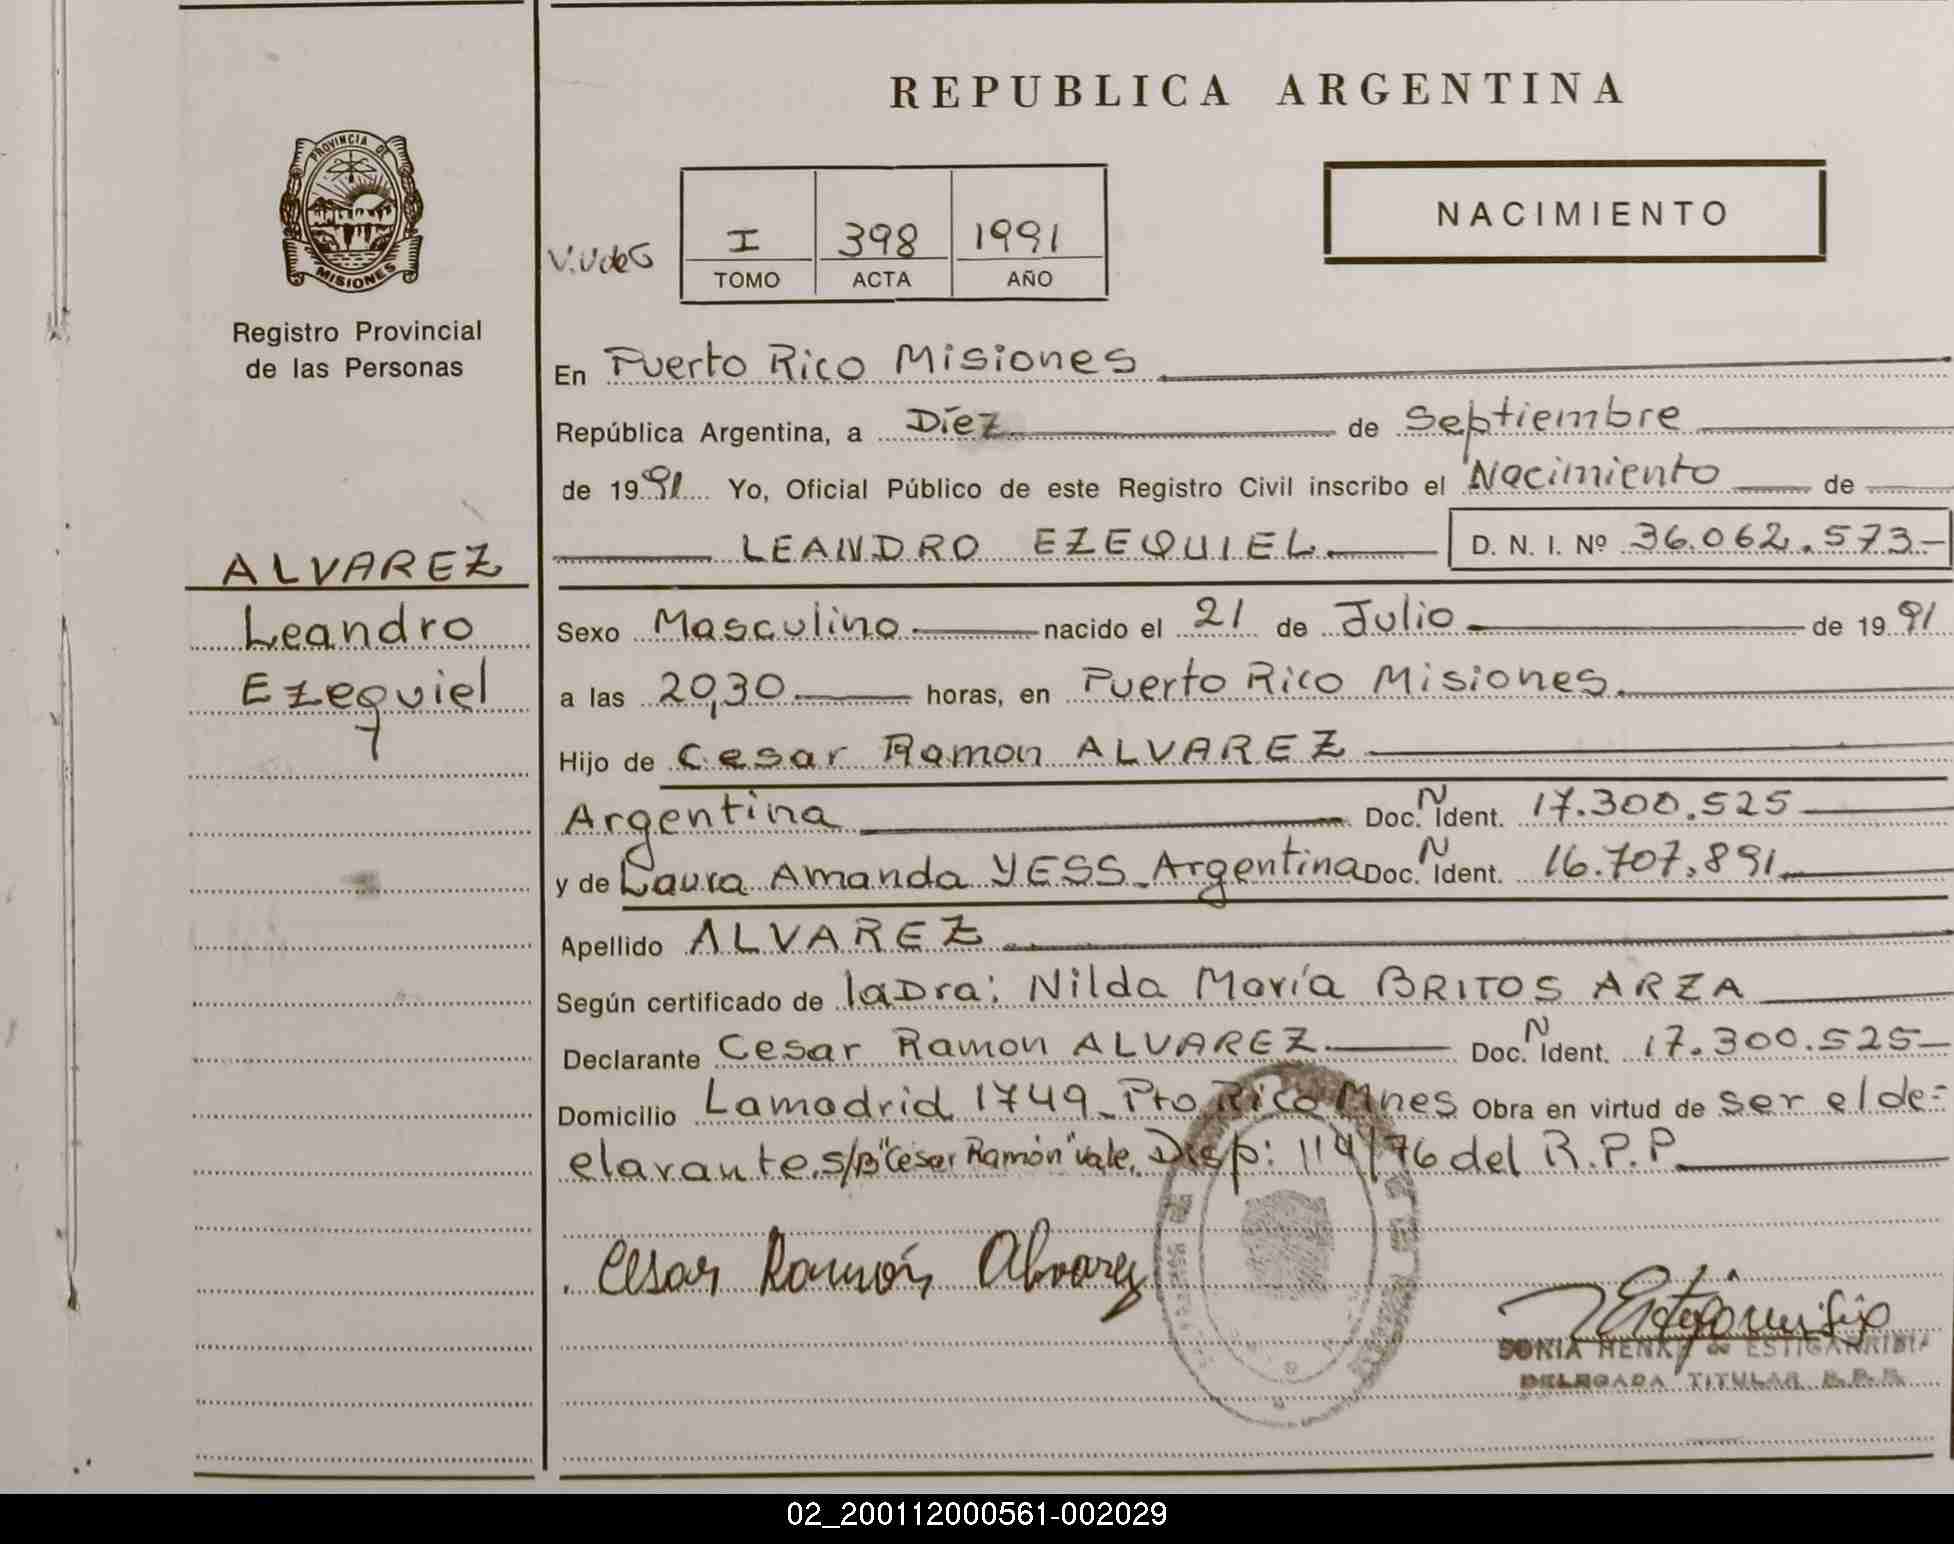 REPUBLICA ARGENTINA
PROVINCIA DE
MISIONES
Registro Provincial
de las Personas
NACIMIENTO
V.V de G
I 398 1991
TOMO ACTA AÑO
En Puerto Rico Misiones
República Argentina, a Díez de Septiembre
de 1991 Yo, Oficial Público de este Registro Civil inscribo el Nacimiento de
LEANDRO EZEQUIEL D. N. I. Nº 36.062.573-
ALVAREZ
Leandro
Ezequiel
Sexo Masculino nacido el 21 de Julio de 1991
a las 20,30 horas, en Puerto Rico Misiones
Hijo de Cesar Ramon ALVAREZ
Argentina Doc. N Ident. 17.300.525
y de Laura Amanda YESS - Argentina Doc. N Ident. 16.707.891
Apellido ALVAREZ
Según certificado de la Dra: Nilda María BRITOS ARZA
Declarante Cesar Ramon ALVAREZ Doc. N Ident. 17.300.525-
Domicilio Lamadrid 1749 - Pto Rico Mnes Obra en virtud de ser el de=
elarante. s/B "Cesar Ramón" vale. Disp: 114/76 del R.P.P.
Cesar Ramón Alvarez
SONIA HENKE de ESTIGARRIBIA
DELEGADA TITULAR R.P.P.
02_200112000561-002029